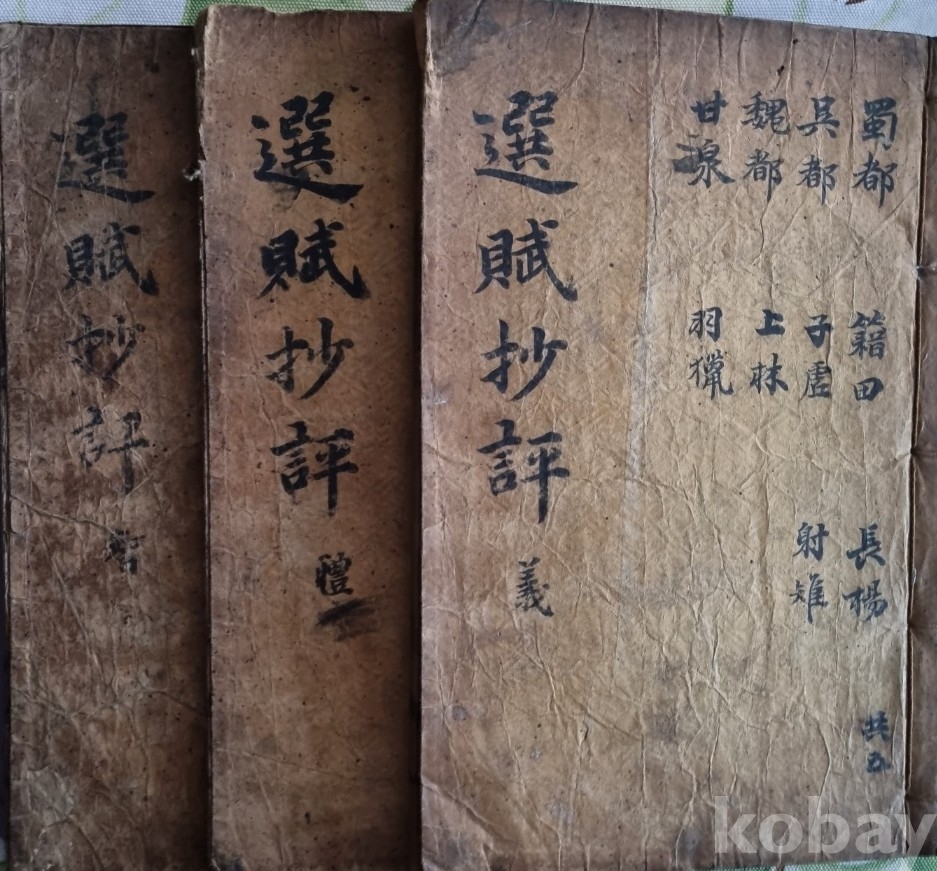 蜀都 籍田 長楊 共五
吳都 子虛 射雉
魏都 上林
甘泉 羽獵
選賦抄評 義
選賦抄評 禮
選賦抄評 智
kobay